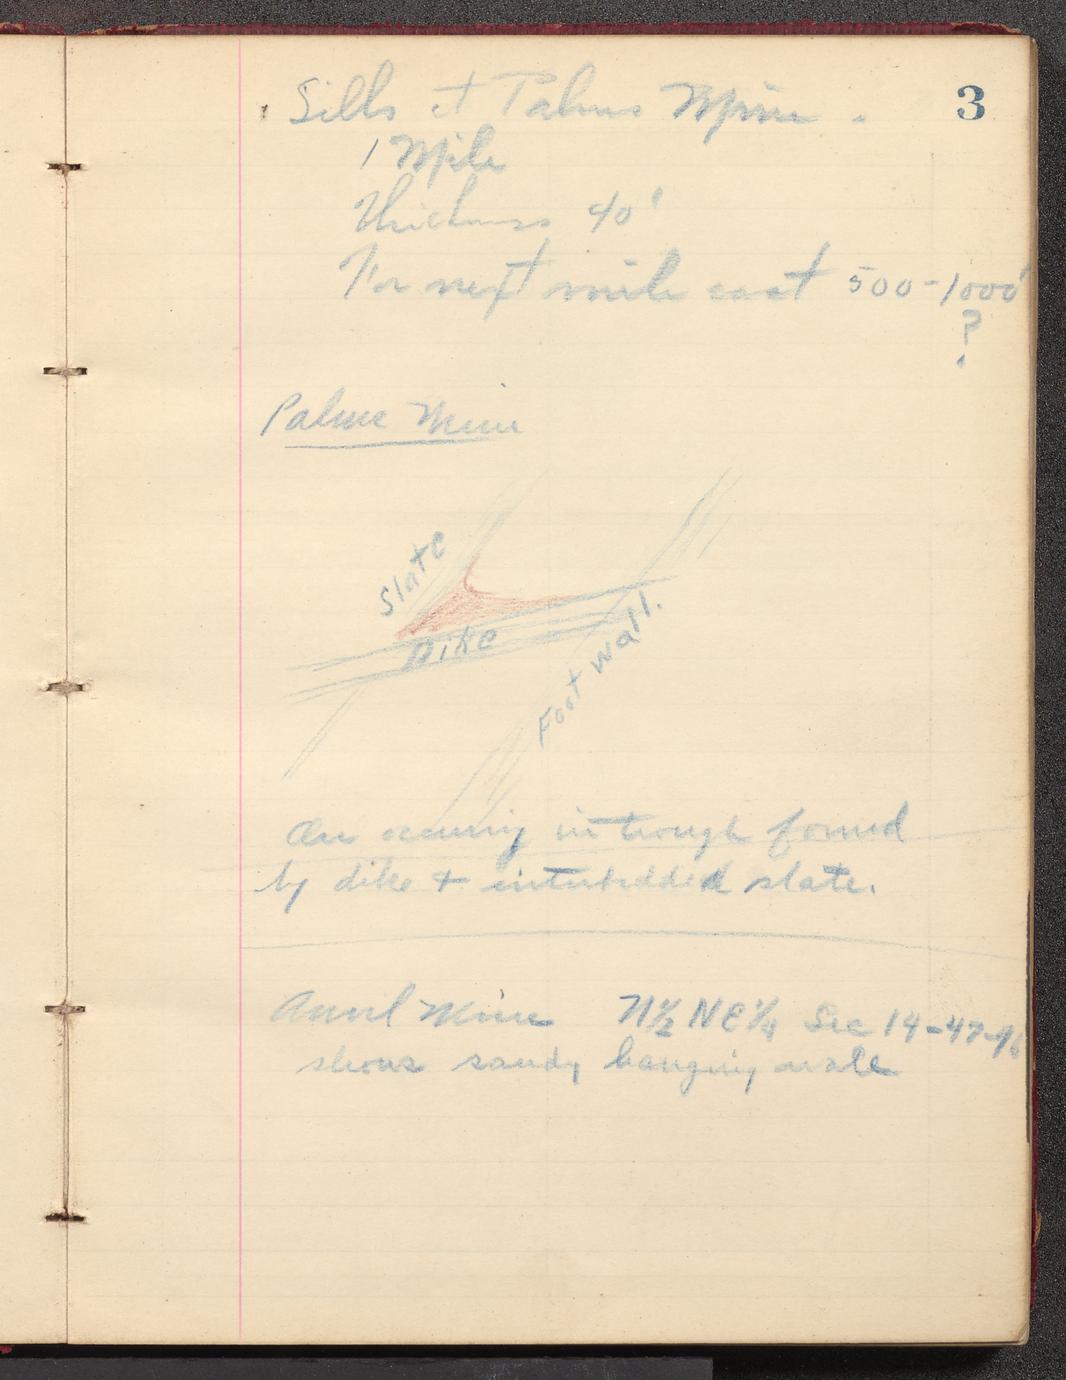 3
Sills at Palms Mine.
1 Mile
Thickness 40'
For next mile east 500-1000'
?
Palms Mine
Slate
Dike
Foot wall.
Ore occuring in trough formed
by dike & interbedded slate.
Anvil Mine N½ NE¼ Sec 14-47-46
shows sandy hanging wall